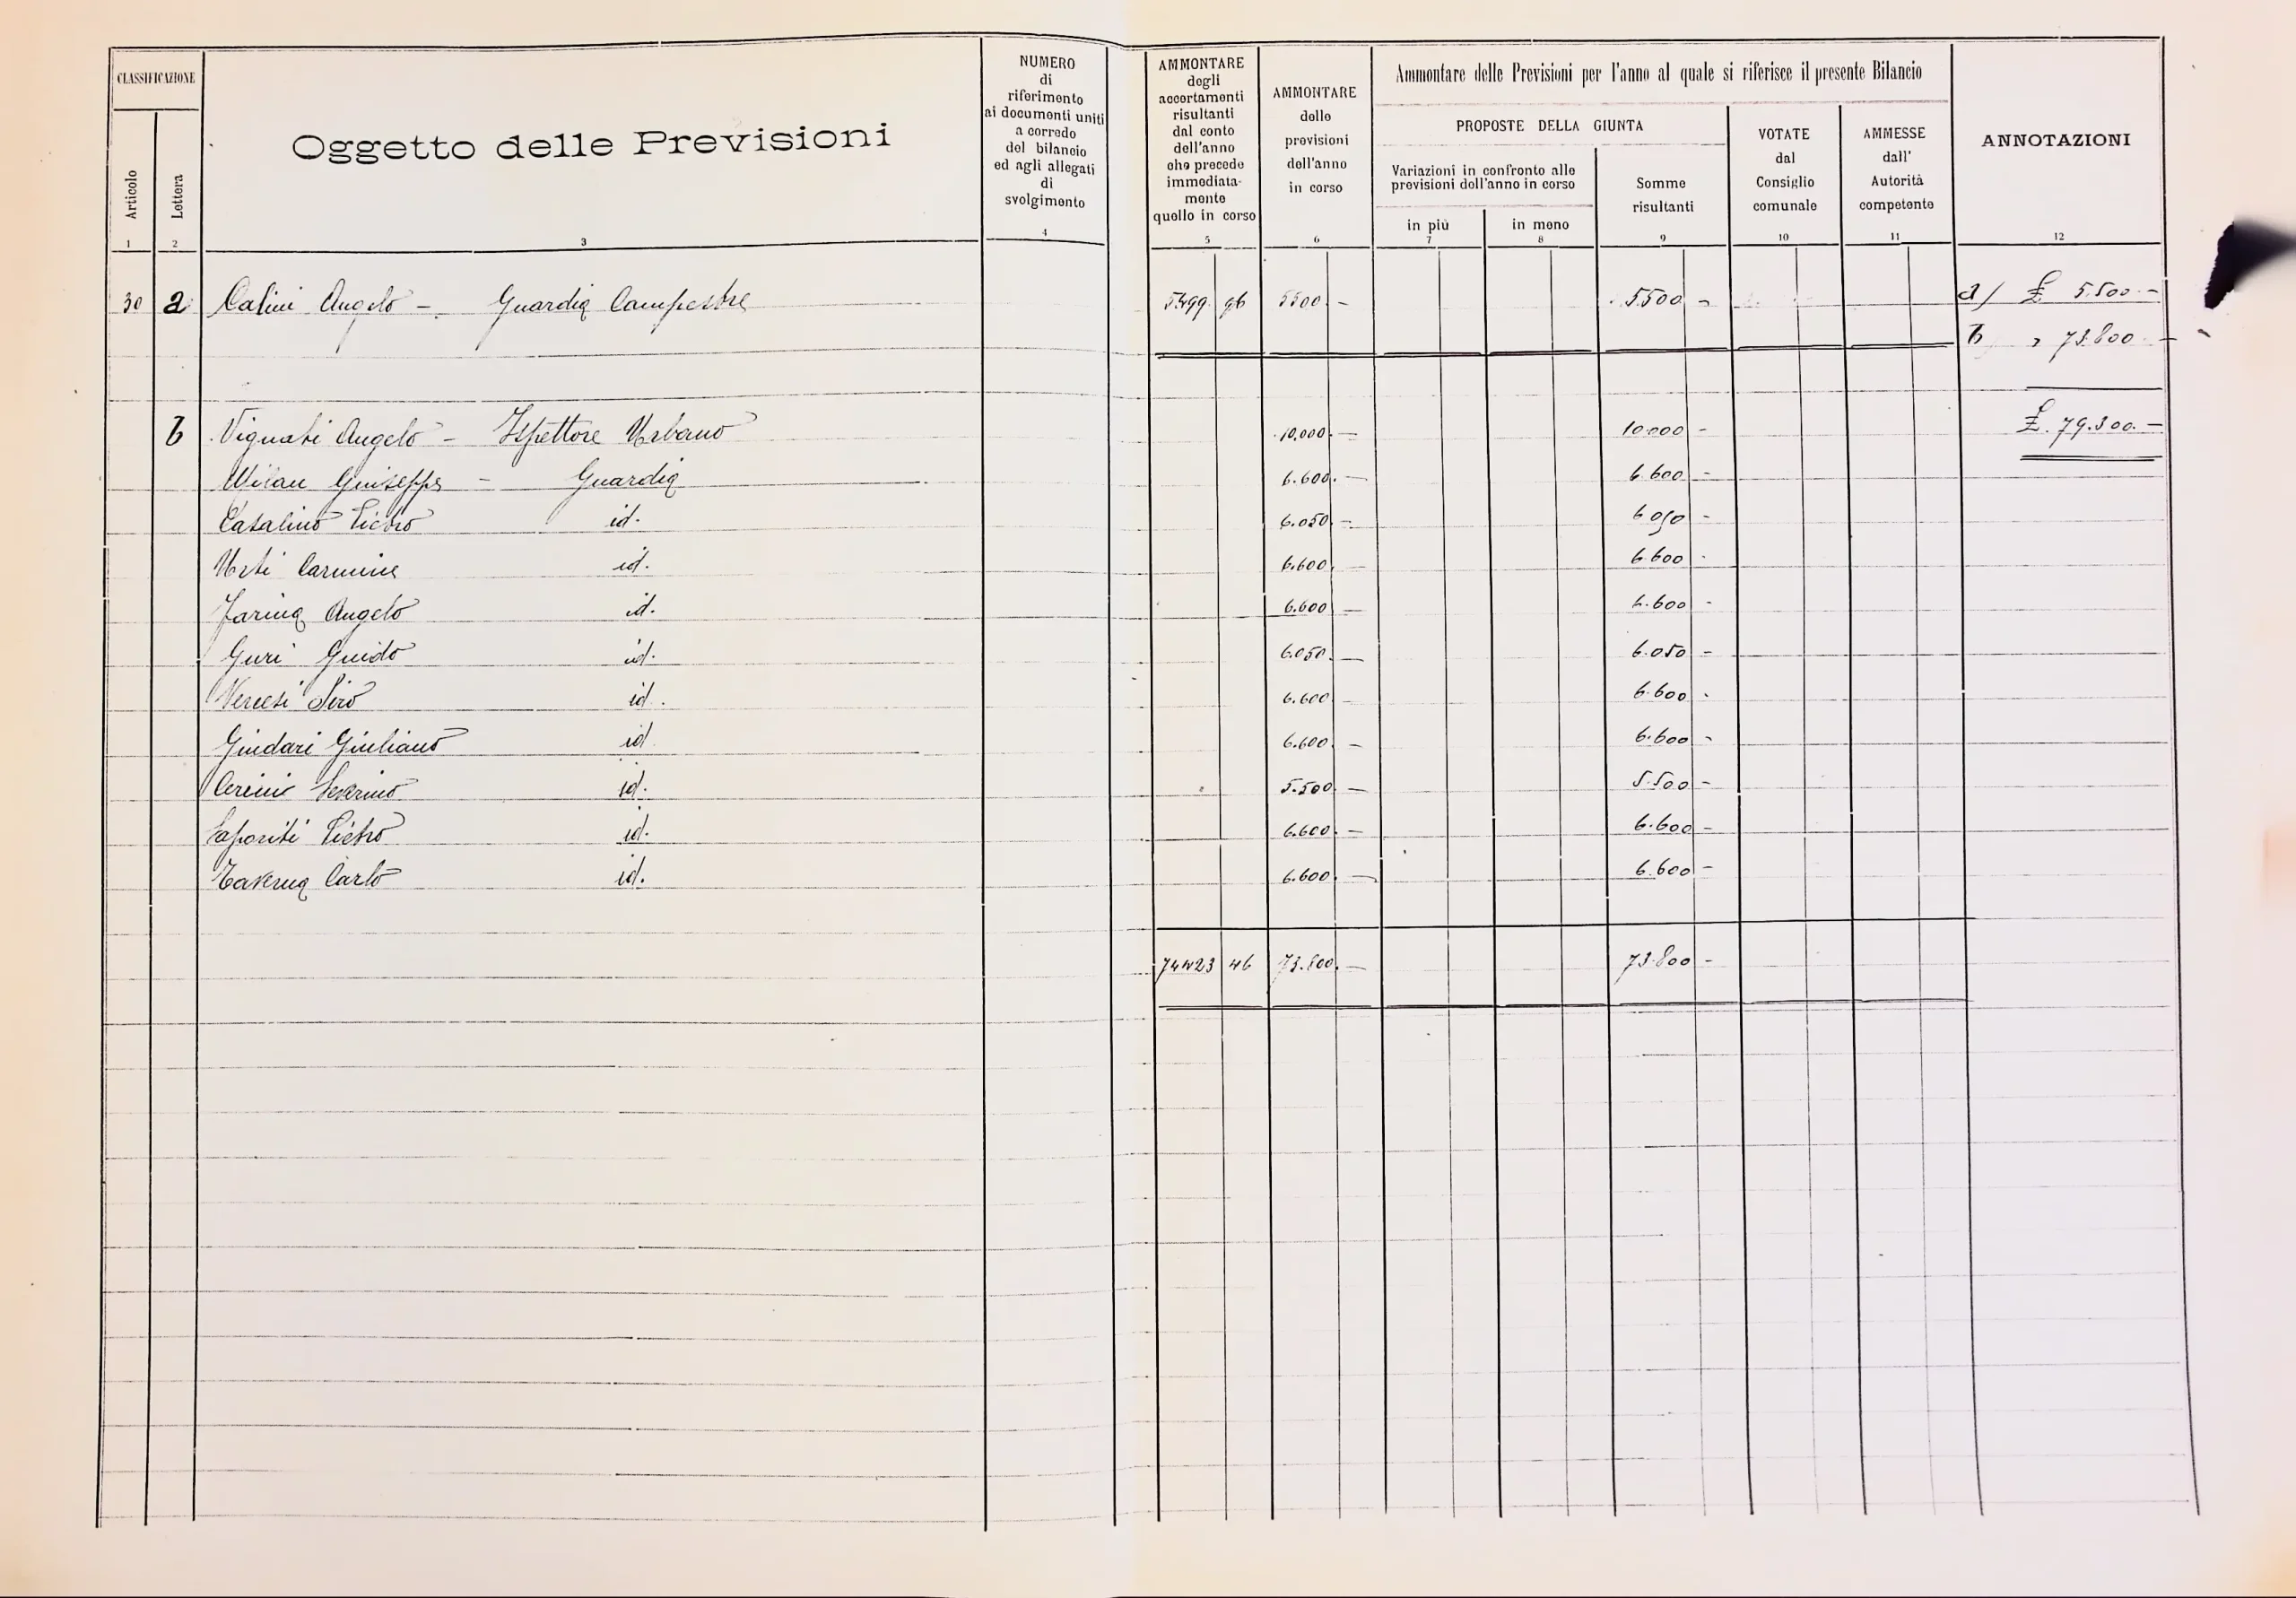 CLASSIFICAZIONE
Articolo
Lettera
Oggetto delle Previsioni
NUMERO
di
riferimento
ai documenti uniti
a corredo
del bilancio
ed agli allegati
di
svolgimento
AMMONTARE
degli
accertamenti
risultanti
dal conto
dell'anno
che precede
immediata-
mente
quello in corso
AMMONTARE
delle
previsioni
dell'anno
in corso
Ammontare delle Previsioni per l'anno al quale si riferisce il presente Bilancio
PROPOSTE DELLA GIUNTA
Variazioni in confronto alle
previsioni dell'anno in corso
in più
in meno
Somme
risultanti
VOTATE
dal
Consiglio
comunale
AMMESSE
dall'
Autorità
competente
ANNOTAZIONI
1 2 3 4 5 6 7 8 9 10 11 12
30 a Calini Angelo - Guardia Campestre 5499 96 5500 - 5.500 - a) £ 5.500 -
b " 73.800 -
b Vignati Angelo - Ispettore Urbano 10,000 - 10.000 - £. 79.300 -
Milan Giuseppe - Guardia 6.600. - 6.600 -
Casalino Pietro id. 6.050 - 6.050 -
Urti Carmine id. 6.600 - 6.600 -
Farina Angelo id. 6.600 - 6.600 -
Guri Guido id. 6.050 - 6.050 -
Vercesi Siro id. 6.600 - 6.600 -
Giudari Giuliano id. 6.600 - 6.600 -
Cerini Severino id. 5.500 - 5.500 -
Saporiti Pietro id. 6.600 - 6.600 -
Taverna Carlo id. 6.600 - 6.600 -
74423 46 73.800 - 73.800 -